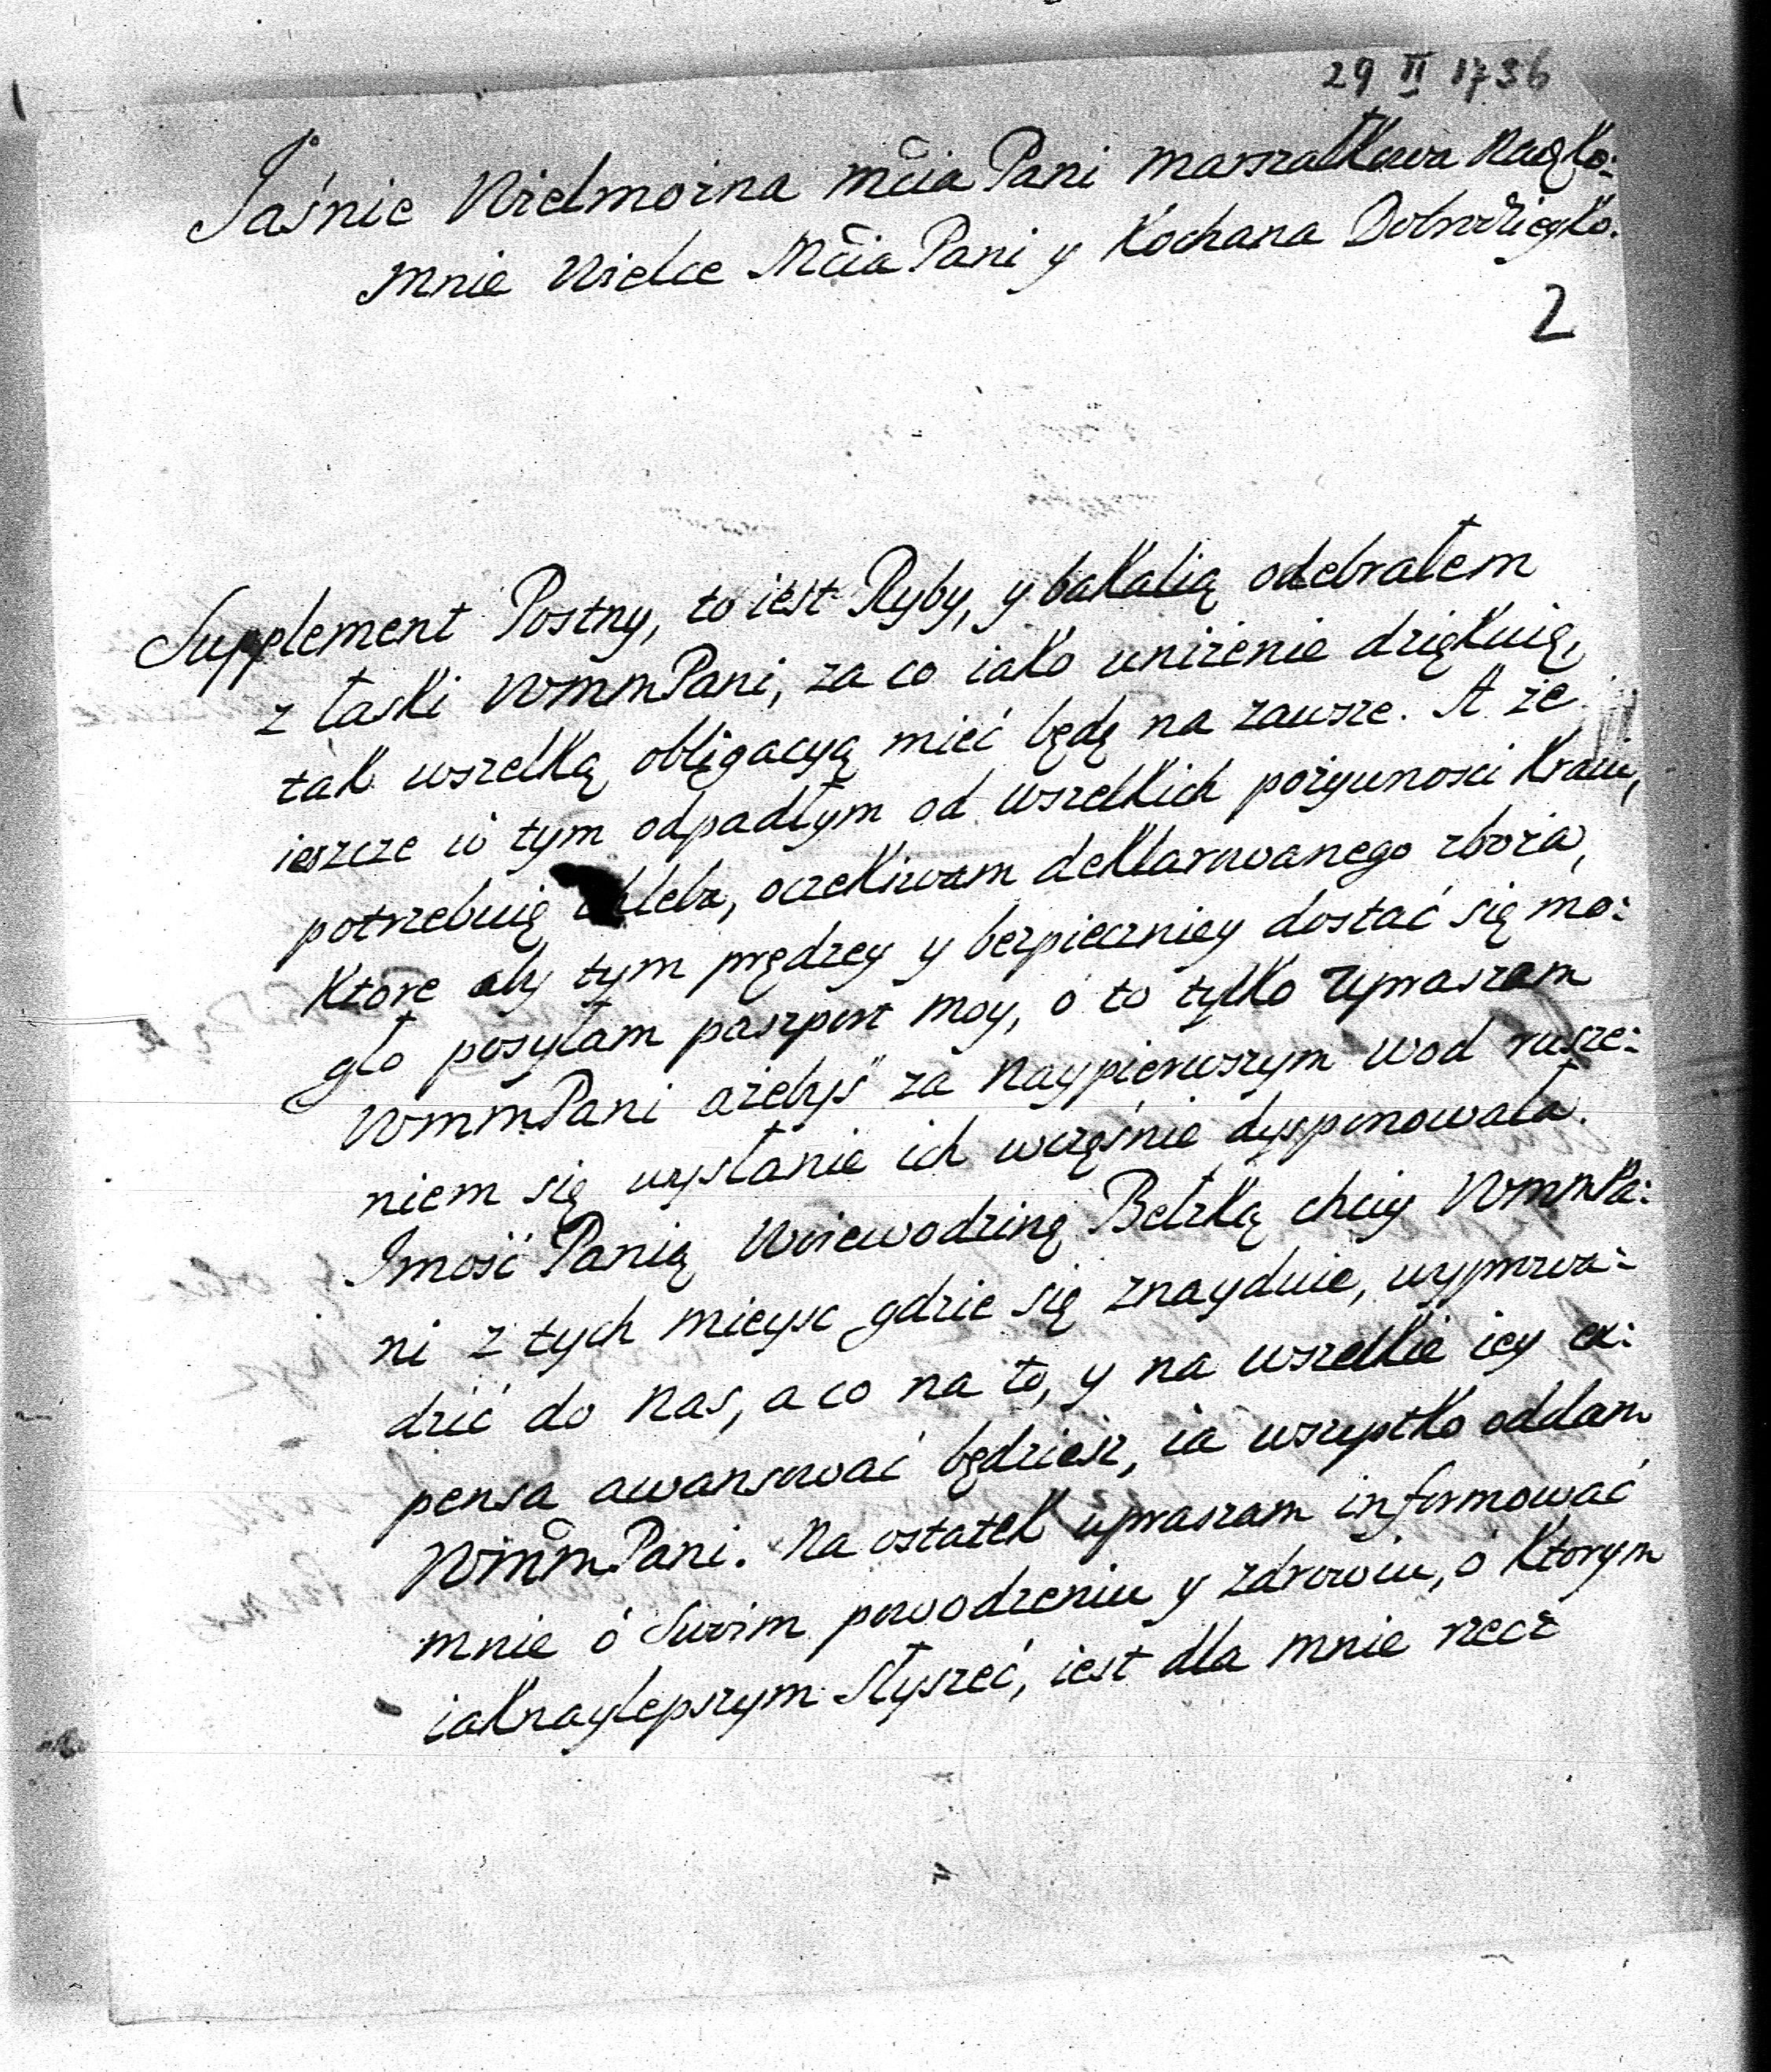 29 II 1736
Jaśnie Wielmożna Mćia Pani Marszałkowa Nadko:
Mnie Wielce Mćia Pani y Kochana Dobrodzieyko.
2
Supplement Postny, to iest Ryby, y bakalią odebrałem
z łaski WMMPani, za co iako uniżenie dziękuię,
tak wszelką obligacyą mieć będę na zawsze. A że
ieszcze w tym odpadłym od wszelkich pożywności kraiu,
potrzebuię chleba, oczekiwam deklarowanego zboża,
Ktore aby tym prędzey y bezpieczniey dostać się mo:
gło posyłam paszport moy, o to tylko upraszam
WMMPani ażebyś za naypierwszym wod rusze:
niem się wysłanie ich wcześnie dysponowała.
Imość Panią Woiewodzinę Bełzką chciey WMMPa:
ni z tych mieysc gdzie się znayduie, wyprowa:
dzić do nas, a co na to, y na wszelkie iey ex:
pensa awansować będziesz, ia wszystko oddam
WMMPani. Na ostatek upraszam informować
mnie ó Swoim powodzeniu y zdrowiu, ó Ktorym
iaknaylepszym Słyszeć, iest dla mnie rzecz